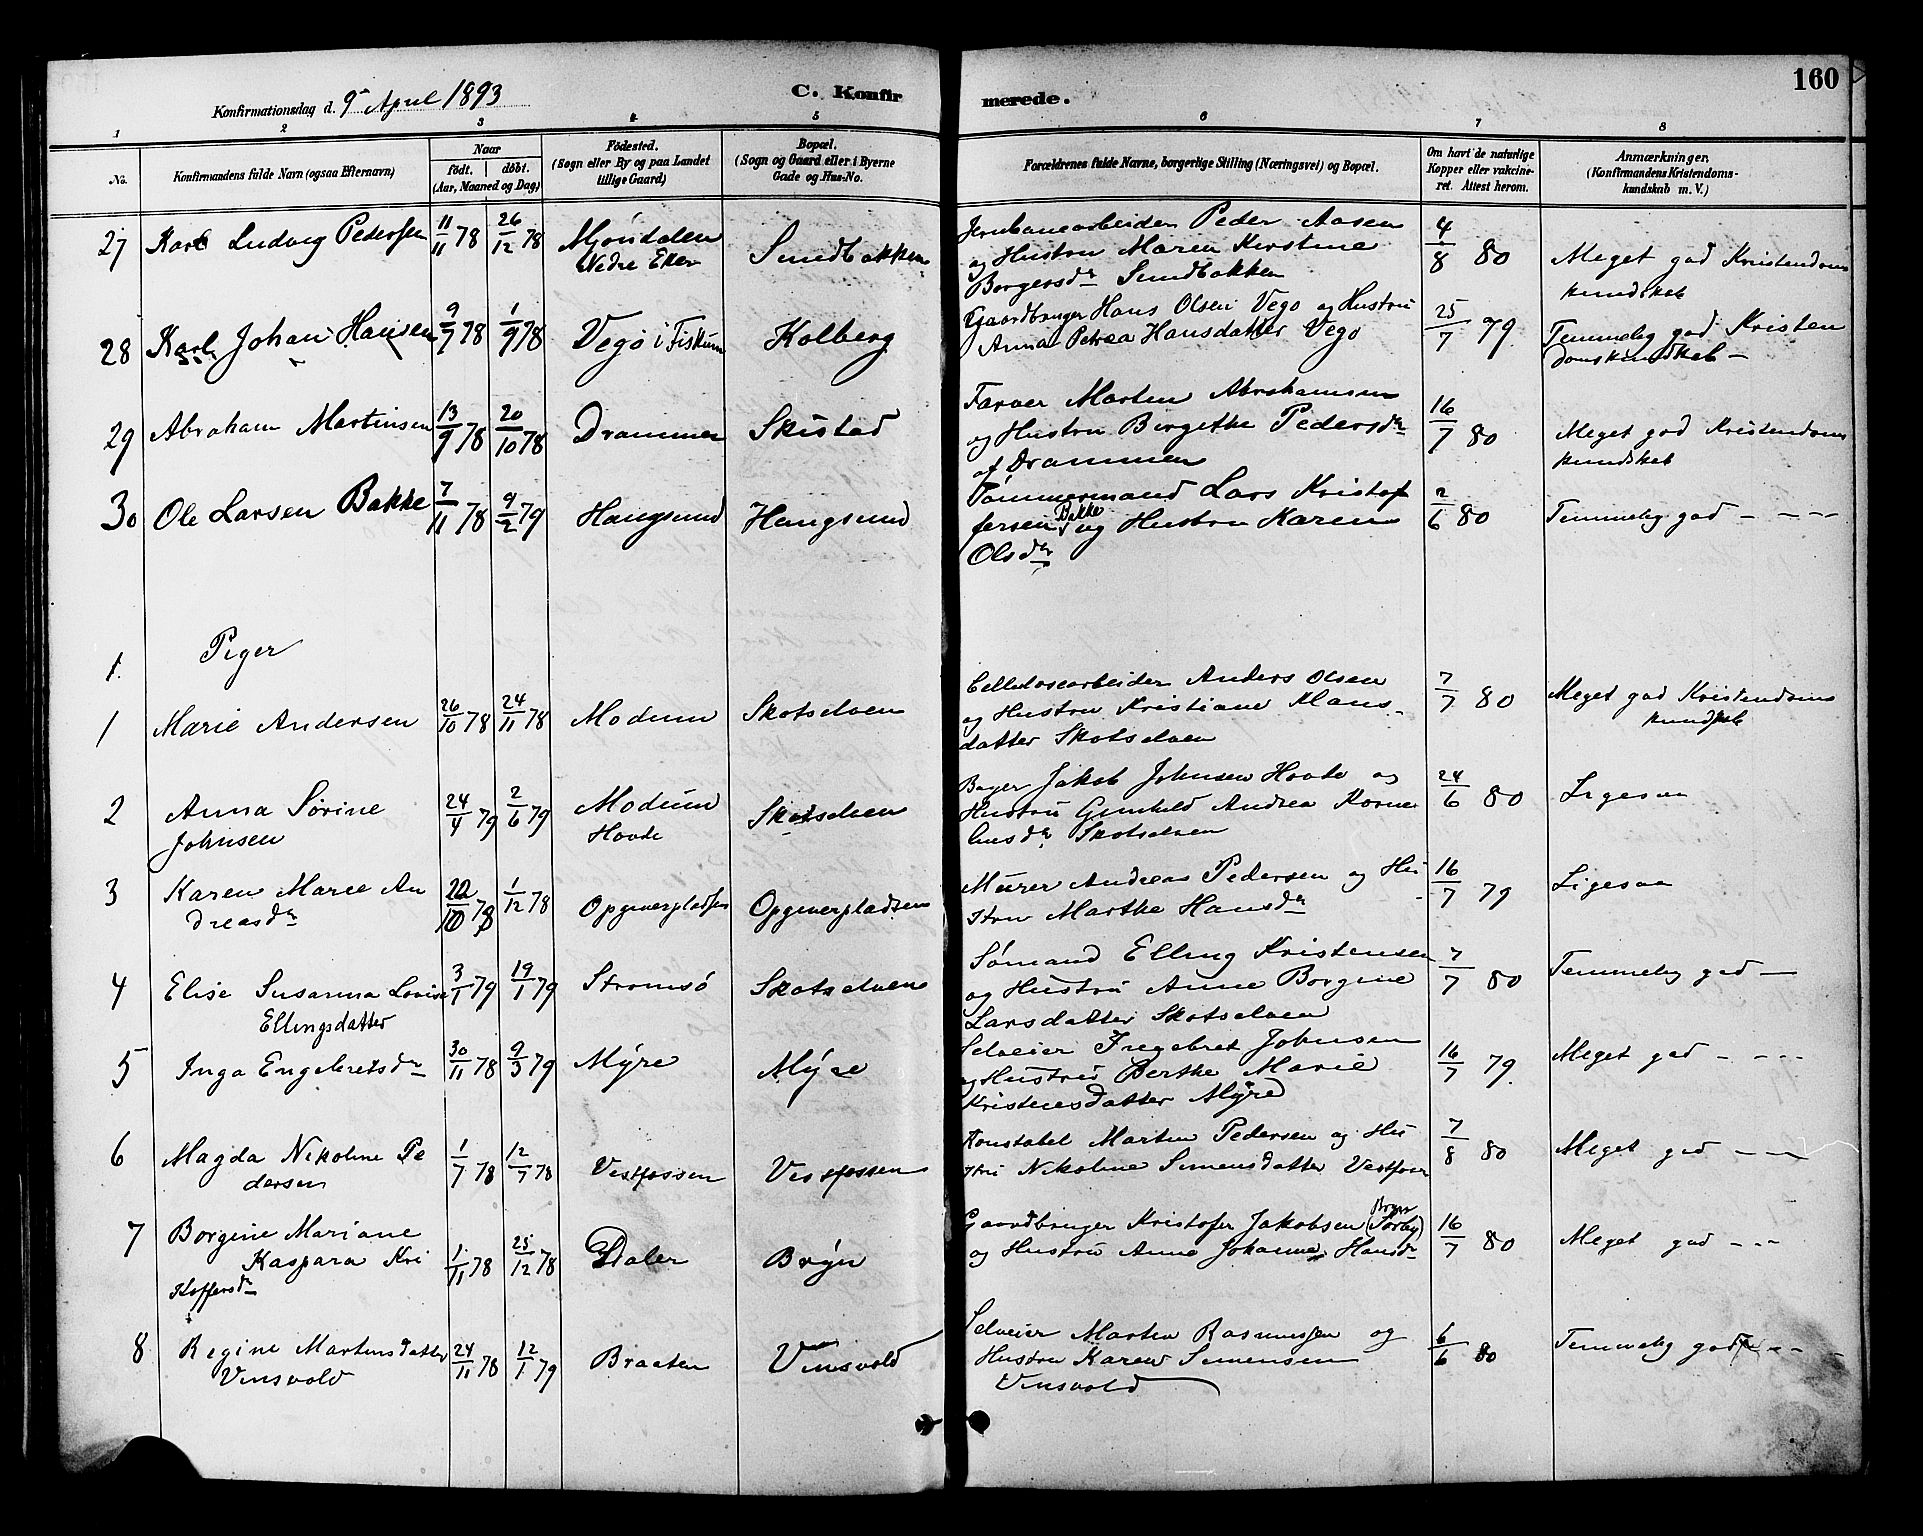 160
Konfirmationsdag d. 9de April 1893
C. Konfirmerede.
1 2 3 4 5 6 7 8
No.
Konfirmandens fulde Navn (ogsaa Efternavn)
Naar
født. døbt.
(Aar, Maaned og Dag)
Fødested.
(Sogn eller By og paa Landet
tillige Gaard.)
Bopæl.
(Sogn og Gaard eller i Byerne
Gade og Hus-No.
Forældrenes fulde Navne, borgerlige Stilling (Næringsvei) og Bopæl.
Om havt de naturlige
Kopper eller vakcineret. Attest herom.
Anmærkninger.
(Konfirmandens Kristendomskundskab m. V.)
27 Karl Ludvig Pedersen 11/11 78 26/12 78 Mjøndalen Sundbakken
Nedre Eker
Jernbanearbeider Peder Aasen
og Hustru Maren Kirstine
Borgersdr Sundbakken
4/8 80 Meget god Kristendoms
kundskab
28 Karl Johan Hansen 9/7 78 1/9 78 Vego i Fiskum Kolberg
Gaardbruger Hans Olsen Vego og Hustru
Anna Petrea Hansdatter Vego
25/7 79 Temmelig god Kristen
domskundskab —
29 Abraham Martinsen 13/9 78 20/10 78 Drammen Skistad
Farver Morten Abrahamsen
og Hustru Birgethe Pedersdr
af Drammen
16/7 80 Meget god Kristendoms
kundskab
30 Ole Larsen Bakke 7/11 78 9/2 79 Hougsund Hougsund
Tømmermand Lars Kristof
fersen Bakke og Hustru Karen
Olsdr
2/6 80 Temmelig god - - - -
1. Piger
1 Marie Andersen 26/10 78 24/11 78 Modum Skotselven
Cellulosearbeider Anders Olsen
og Hustru Kristiane Hans-
datter Skotselven
7/7 80 Meget god Kristendoms
kundskab
2 Anna Sørine 24/4 79 2/6 79 Modum Skotselven
Johnsen Hovde
Bager Jakob Johnsen Hovde og
Hustru Gunhild Andrea Korne
liusdr Skotselven
24/6 80 Ligesaa
3 Karen Marie An 1/12 78 Opgaverpladsen Opgaverpladsen
dreasdr
Murer Andreas Pedersen og Hu
stru Marthe Hansdr
16/7 79 Ligesaa
4 Elise Susanna Lovise 3/1 79 19/1 79 Strømsø Skotselven
Ellingsdatter
Sømand Elling Kristensen
og Hustru Anne Borgine
Larsdatter Skotselven
7/7 80 Temmelig god —
5 Inga Engebretsdr 30/11 78 9/3 79 Myre Myre
Selveier Ingebret Johnsen
og Hustru Berthe Marie
Kristensdatter Myre
16/7 79 Meget god - - - -
6 Magda Nikoline Pe 1/7 78 12/7 78 Vestfossen Vestfossen
dersen
Konstabel Martin Pedersen og Hu
stru Nikoline Simensdatter Vestfossen
7/8 80 Meget god - - -
7 Borgine Mariane
Kaspara Kri 1/11 78 25/12 78 Daler Bryn
stoffersdr
Gaardbruger Kristofer Jakobsen (Sørby) Bryn
og Hustru Anne Johanne Hansdr
16/7 80 Meget god - - -
8 Regine Martinsdatter 24/11 78 12/1 79 Braaten Vinsvold
Vinsvold
Selveier Martin Rasmussen og
Hustru Karen Simensen
Vinsvold
6/6 80 Temmelig god - - -